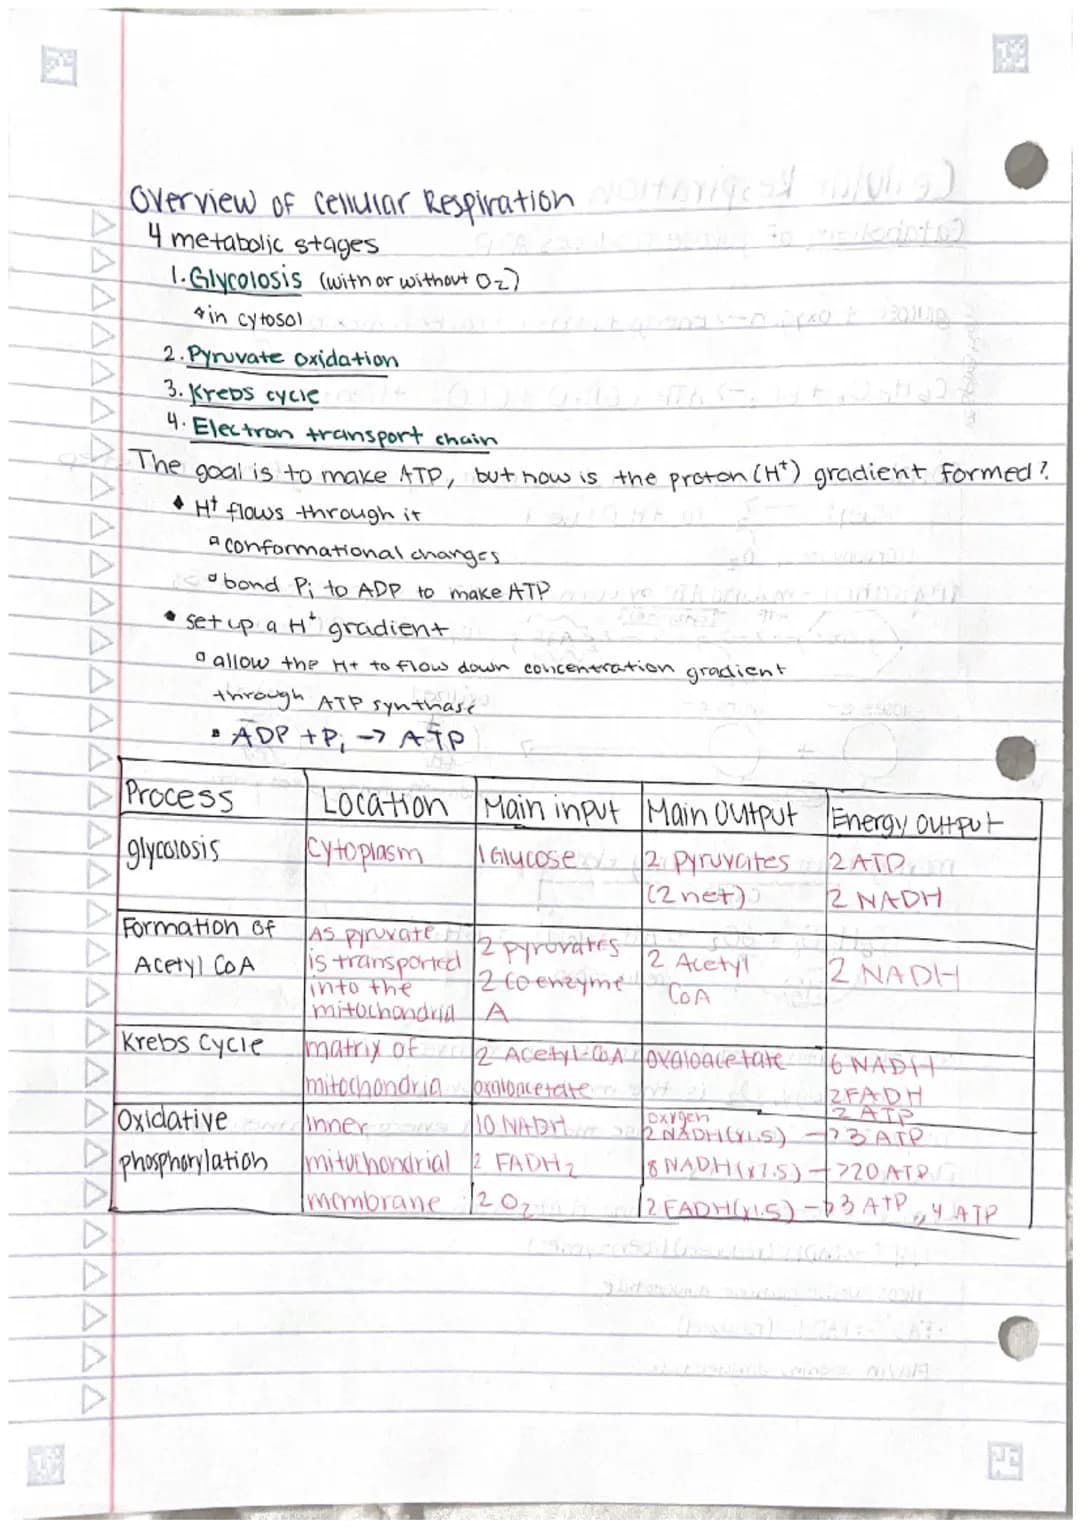 Overview of Cellular Respiration
4 metabolic stages
1. Glycolosis (with or without O2)
in cytosol
2. Pyruvate oxidation
3. Krebs cycle
4. Electron transport chain
The goal is to make ATP, but how is the proton (H+) gradient formed?
H+ flows through it
conformational changes
bond Pi to ADP to make ATP
set up a H+ gradient
allow the H+ to flow down concentration gradient
through ATP synthase
ADP + Pi → ATP
Process Location Main input Main Output Energy output
glycolosis Cytoplasm 1 Glucose 2 pyruvates 2 ATP
(2 net) 2 NADH
Formation of As pyruvate 2 pyruvates 2 Acetyl 2 NADH
Acetyl CoA is transported 2 coenzyme CoA
into the A
mitochondria
Krebs Cycle matrix of 2 Acetyl-CoA oxaloacetate 6 NADH
mitochondria oxaloacetate 2 FADH
2 ATP
Oxidative inner 10 NADH oxygen
2 NADH (x1.5) → 3 ATP
phosphorylation mitochondrial 2 FADH2 8 NADH (x2.5) → 20 ATP
membrane 2 O2 2 FADH (x1.5) → 3 ATP, 4 ATP